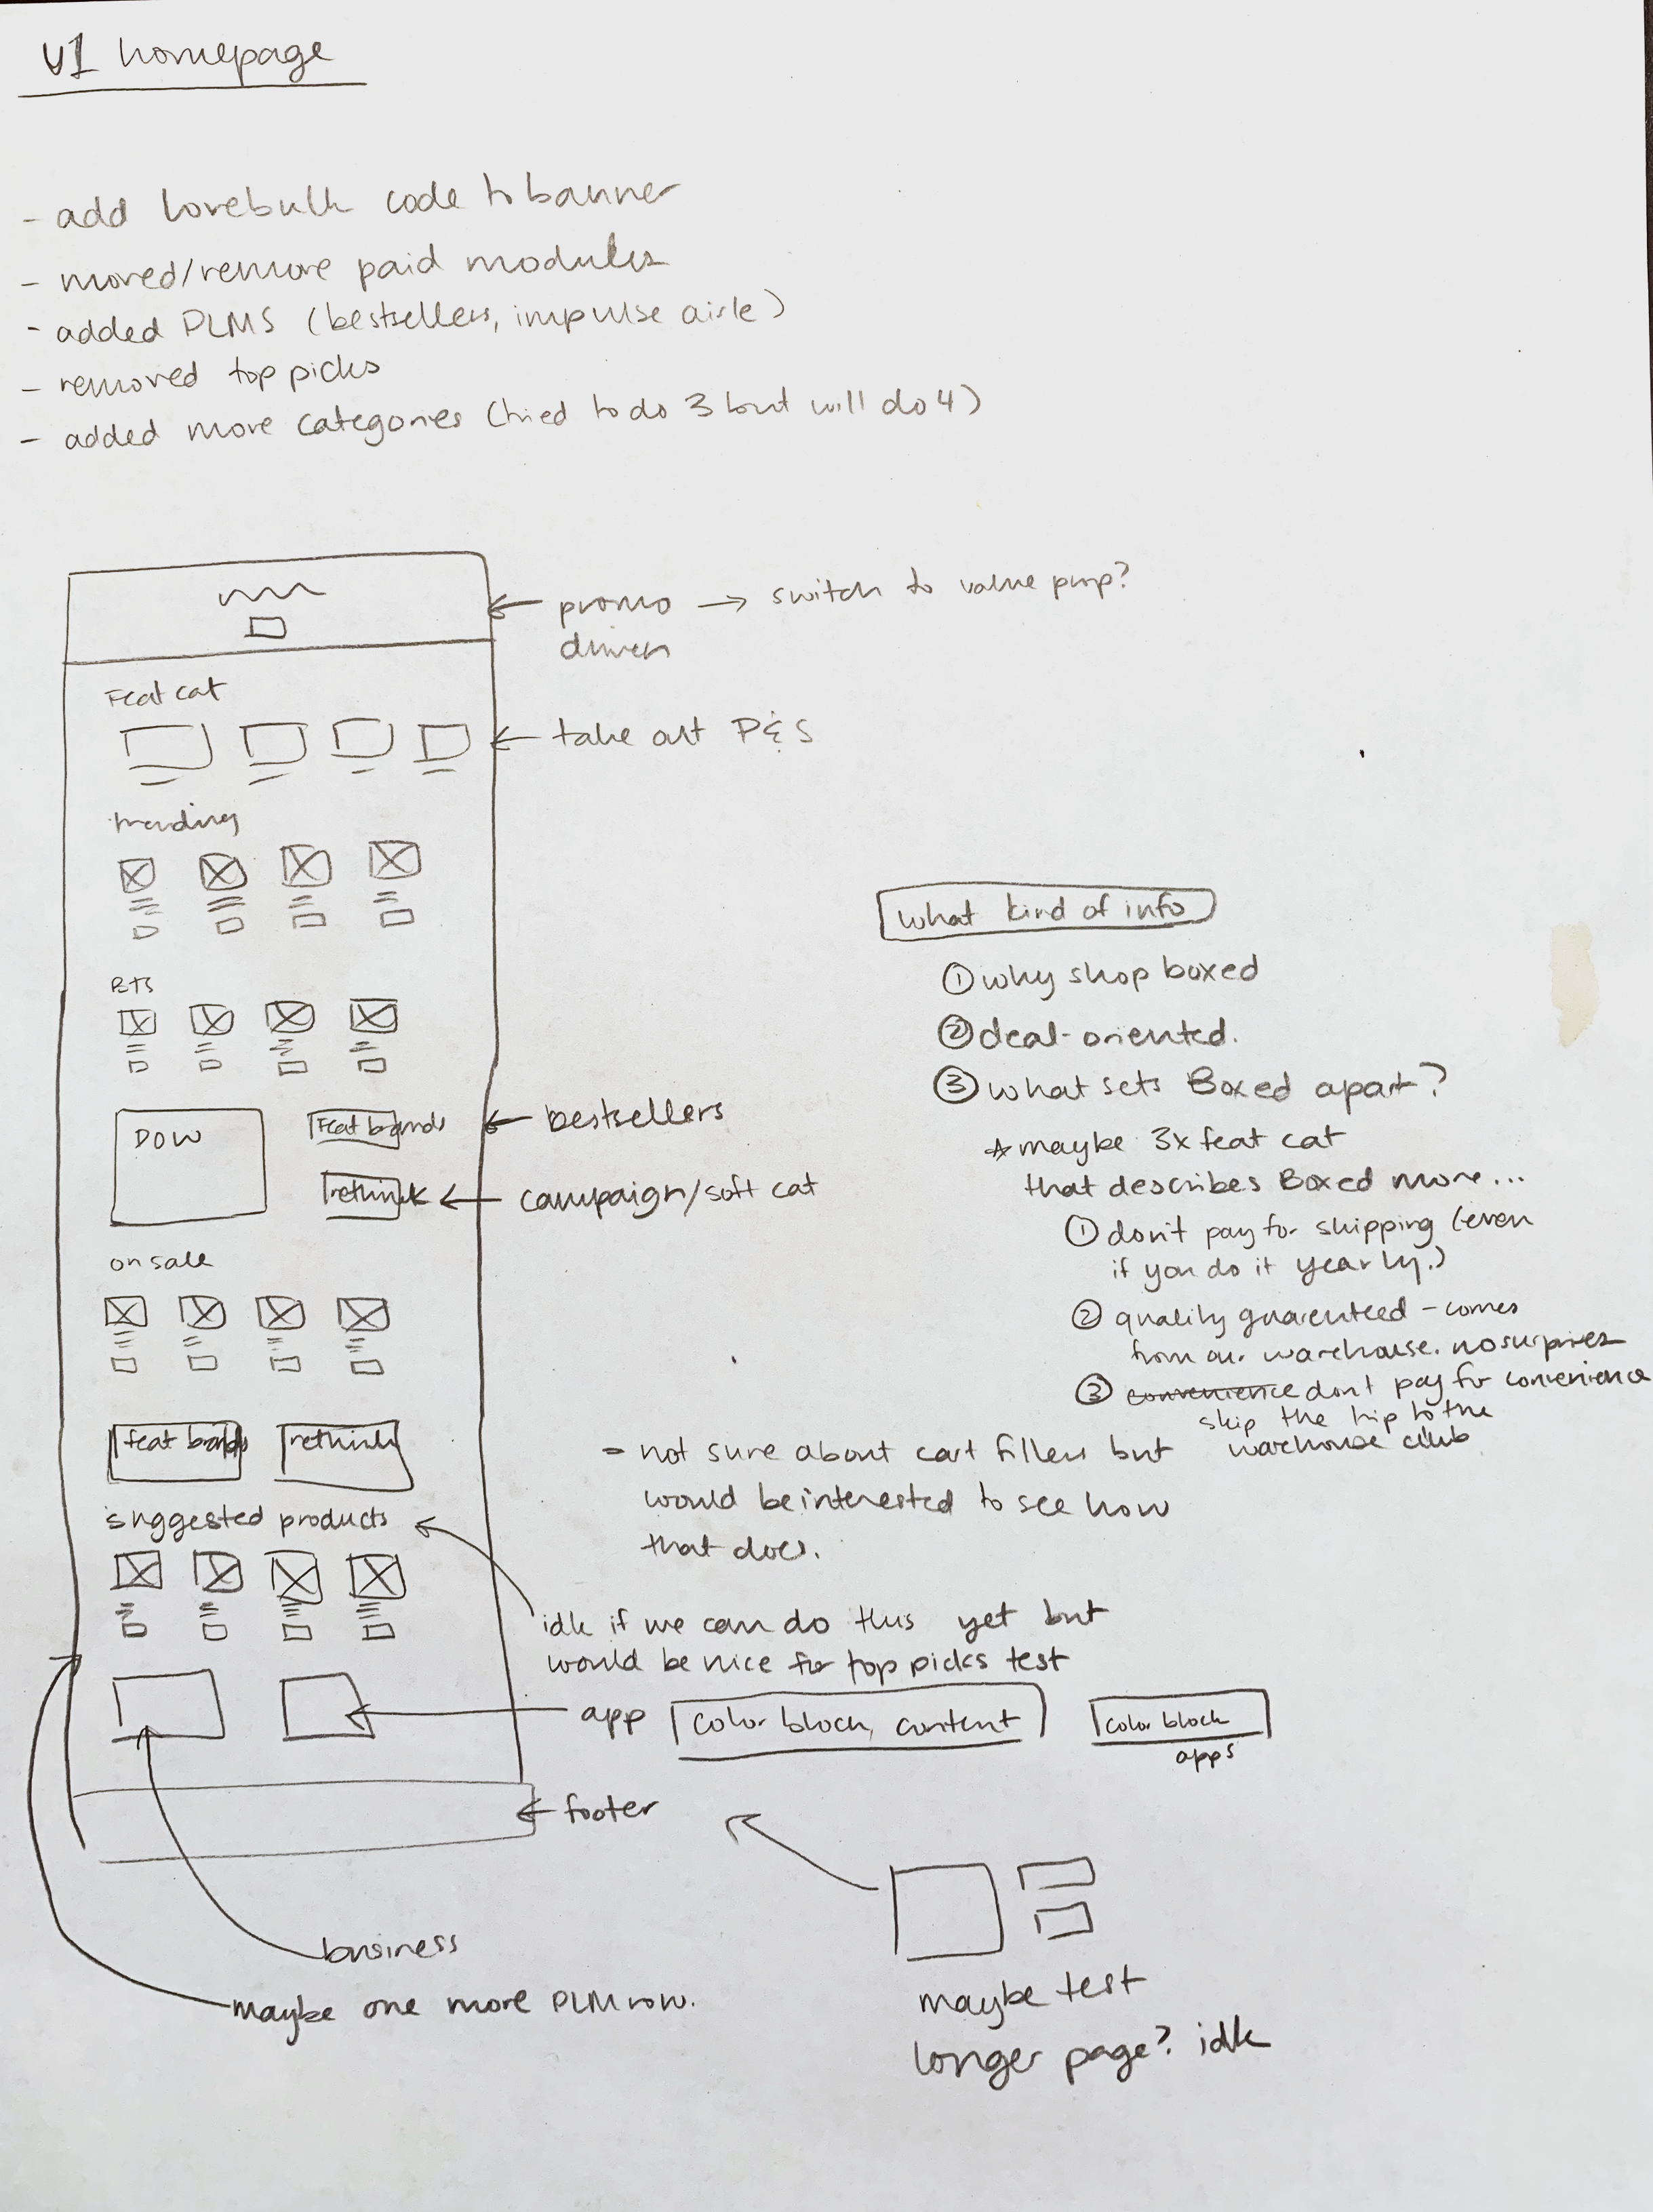 V1 homepage
- add lovebulk code to banner
- moved/remove paid modules
- added PLMS (bestsellers, impulse aisle)
- removed top picks
- added more categories (tried to do 3 but will do 4)
promo → switch to value prop?
driven
Feat cat
← take out P&S
trending
BTS
DOW
Feat brands
← bestsellers
rethink
← campaign/soft cat
on sale
feat brands
rethink
suggested products
idk if we can do this yet but
would be nice for top picks test
app
color block, content
color block
apps
← footer
business
maybe one more PLM row.
what kind of info
① why shop boxed
② deal-oriented.
③ what sets Boxed apart?
☆ maybe 3x feat cat
that describes Boxed more...
① don't pay for shipping (even
if you do it yearly.)
② quality guarenteed - comes
from our warehouse. no surprises
③ convenience don't pay for convenience
skip the trip to the
warehouse club
- not sure about cart fillers but
would be interested to see how
that does.
maybe test
longer page? idk